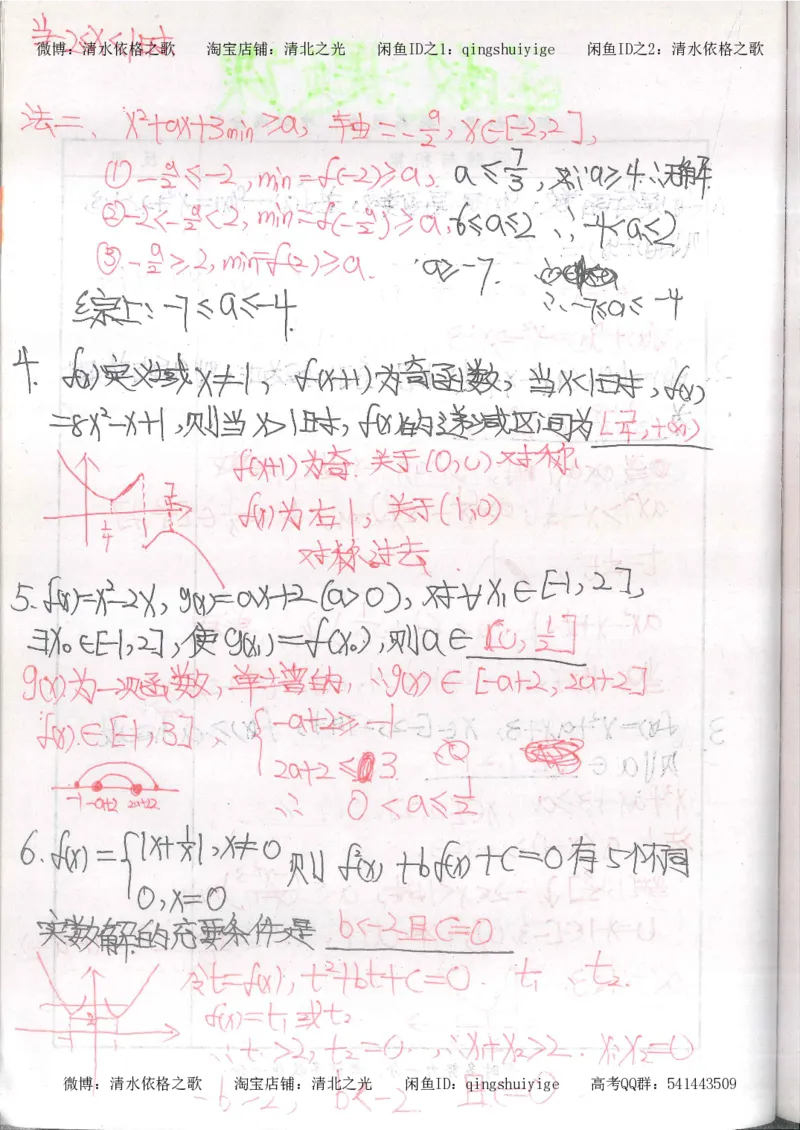 当-2≤x<1时
微博：清水依格之歌 淘宝店铺：清北之光 闲鱼ID之1：qingshuiyige 闲鱼ID之2：清水依格之歌
法二、x²+ax+3min≥a，轴=-a/2，x∈[-2,2]，
①-a/2≤-2，min=f(-2)≥a，a≤7/3，又∵a≥4∴无解
②-2<-a/2<2，min=f(-a/2)≥a，-6≤a≤2 ∴-4<a≤2
③-a/2≥2，min=f(2)≥a. a≥-7.
∴-7≤a≤-4
综上：-7≤a≤-4
4. f(x)定义域x≠1，f(x+1)为奇函数，当x<1时，f(x)
=8x²-x+1，则当x>1时，f(x)的递减区间为[7/4,+∞)
f(x+1)为奇.关于(0,0)对称，
f(x)为右1，关于(1,0)
对称过去.
1/4 7/4
5. f(x)=x²-2x，g(x)=ax+2(a>0)，对∀x₁∈[-1,2]，
∃x₀∈[-1,2]，使g(x₁)=f(x₀)，则a∈(0,1/2]
g(x)为一次函数，单增的，∴g(x)∈[-a+2,2a+2]
f(x)∈[-1,3]，{-a+2≥-1
2a+2≤3
-1 -a+2 2a+2
∴ 0<a≤1/2
6. f(x)={|x+1/x|，x≠0
0，x=0
则f²(x)+bf(x)+c=0有5个不同
实数解的充要条件是 b<-2且c=0
令t=f(x)，t²+bt+c=0. t₁、t₂.
2
f(x)=t₁或t₂
∴t₁>2，t₂=0. ∴x₁+x₂>2. x₁x₂=0
微博：清水依格之歌 淘宝店铺：清北之光 闲鱼ID：qingshuiyige 高考QQ群：541443509
-b>2，b<-2 且c=0